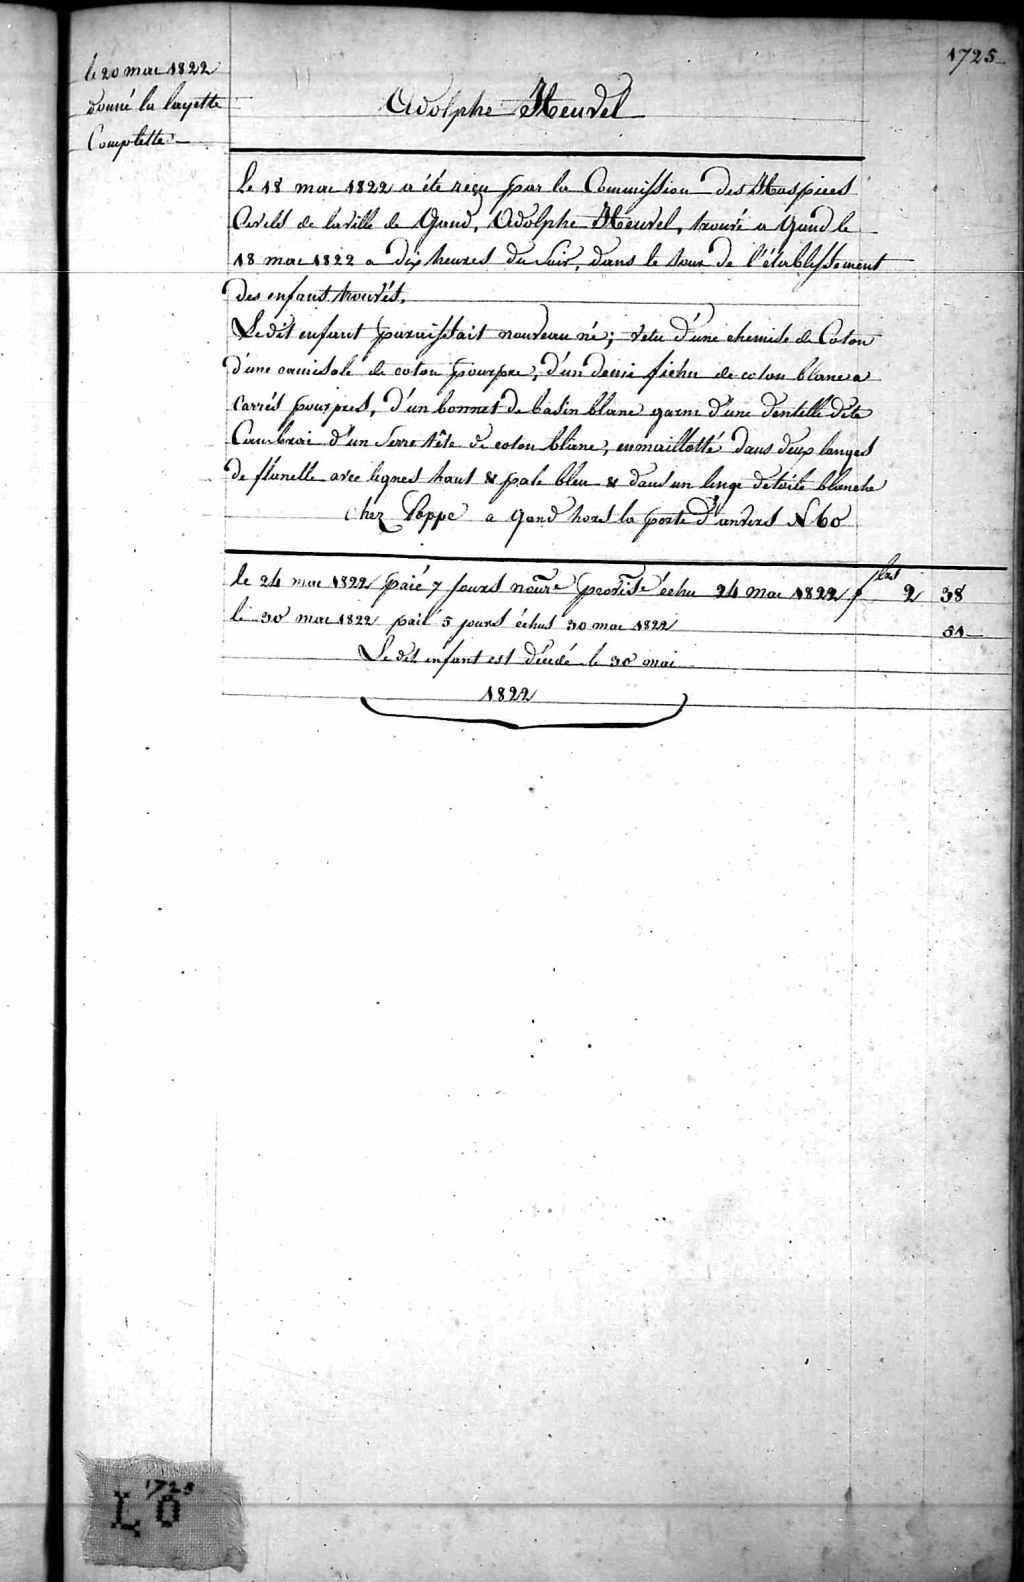 1725
le 20 mai 1822
donné la layette
Complette
Adolphe Heuvel
Le 18 mai 1822 a été reçu par la Commission des Hospices
Civils de la ville de Gand, Adolphe Heuvel, trouvé a Gand le
18 mai 1822 a dix heures du Soir, dans le tour de l'établissement
des enfans trouvés.
Le dit enfant paraissait nouveau né; vetu d'une chemise de Coton
d'une camisole de coton pourpre, d'un demi fichu de coton blanc a
Carrés pourpres, d'un bonnet de basin blanc garni d'une dentelle dite
Cambrai d'un Serre tête de coton blanc, enmaillotté dans deux langes
de flanelle avec lignes haut & pale bleu & dans un linge de toile blanche
Chez Poppe a Gand hors la porte d'anvers N 60
le 24 mai 1822 paié 7 jours nourre provise échu 24 mai 1822 f 2 38
le 30 mai 1822 paié 5 jours échus 30 mai 1822 51
Le dit enfant est décédé le 30 mai
1822
1725
L O